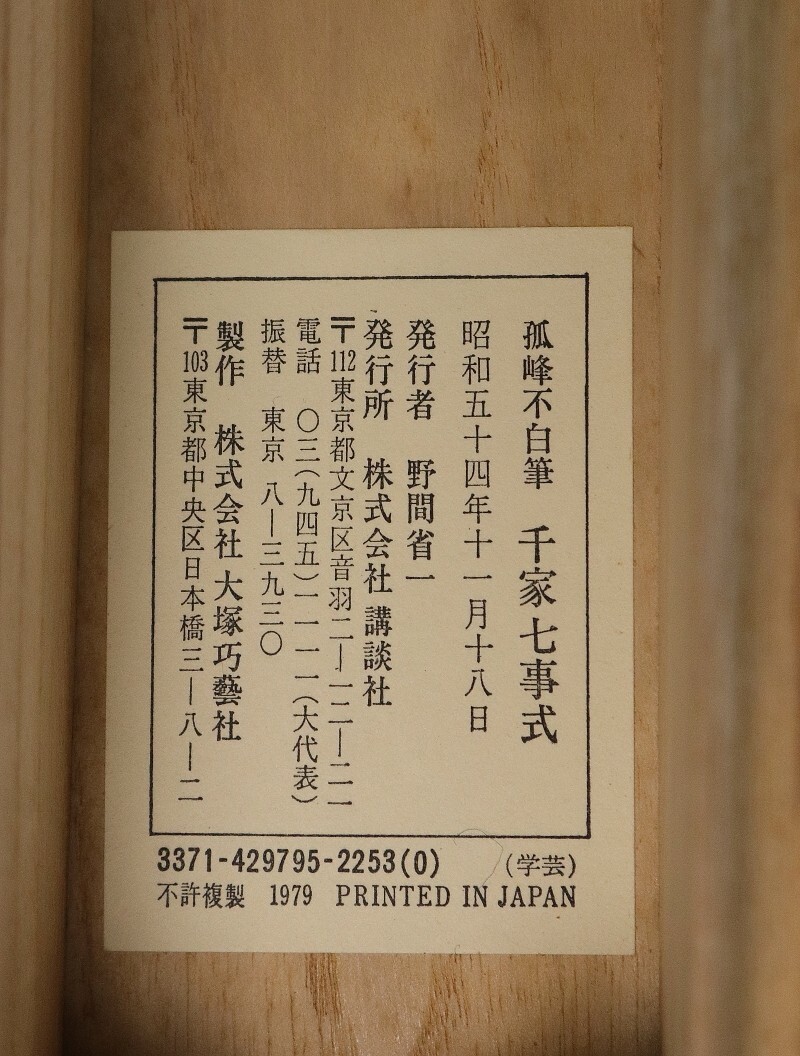 孤峰不白筆　千家七事式
昭和五十四年十一月十八日
発行者　野間省一
発行所　株式会社 講談社
〒112東京都文京区音羽二―一二―二一
電話　〇三(九四五)一一一一(大代表)
振替　東京 八―三九三〇
製作　株式会社 大塚巧藝社
〒103東京都中央区日本橋三―八―二
3371-429795-2253(0)　(学芸)
不許複製　1979　PRINTED IN JAPAN